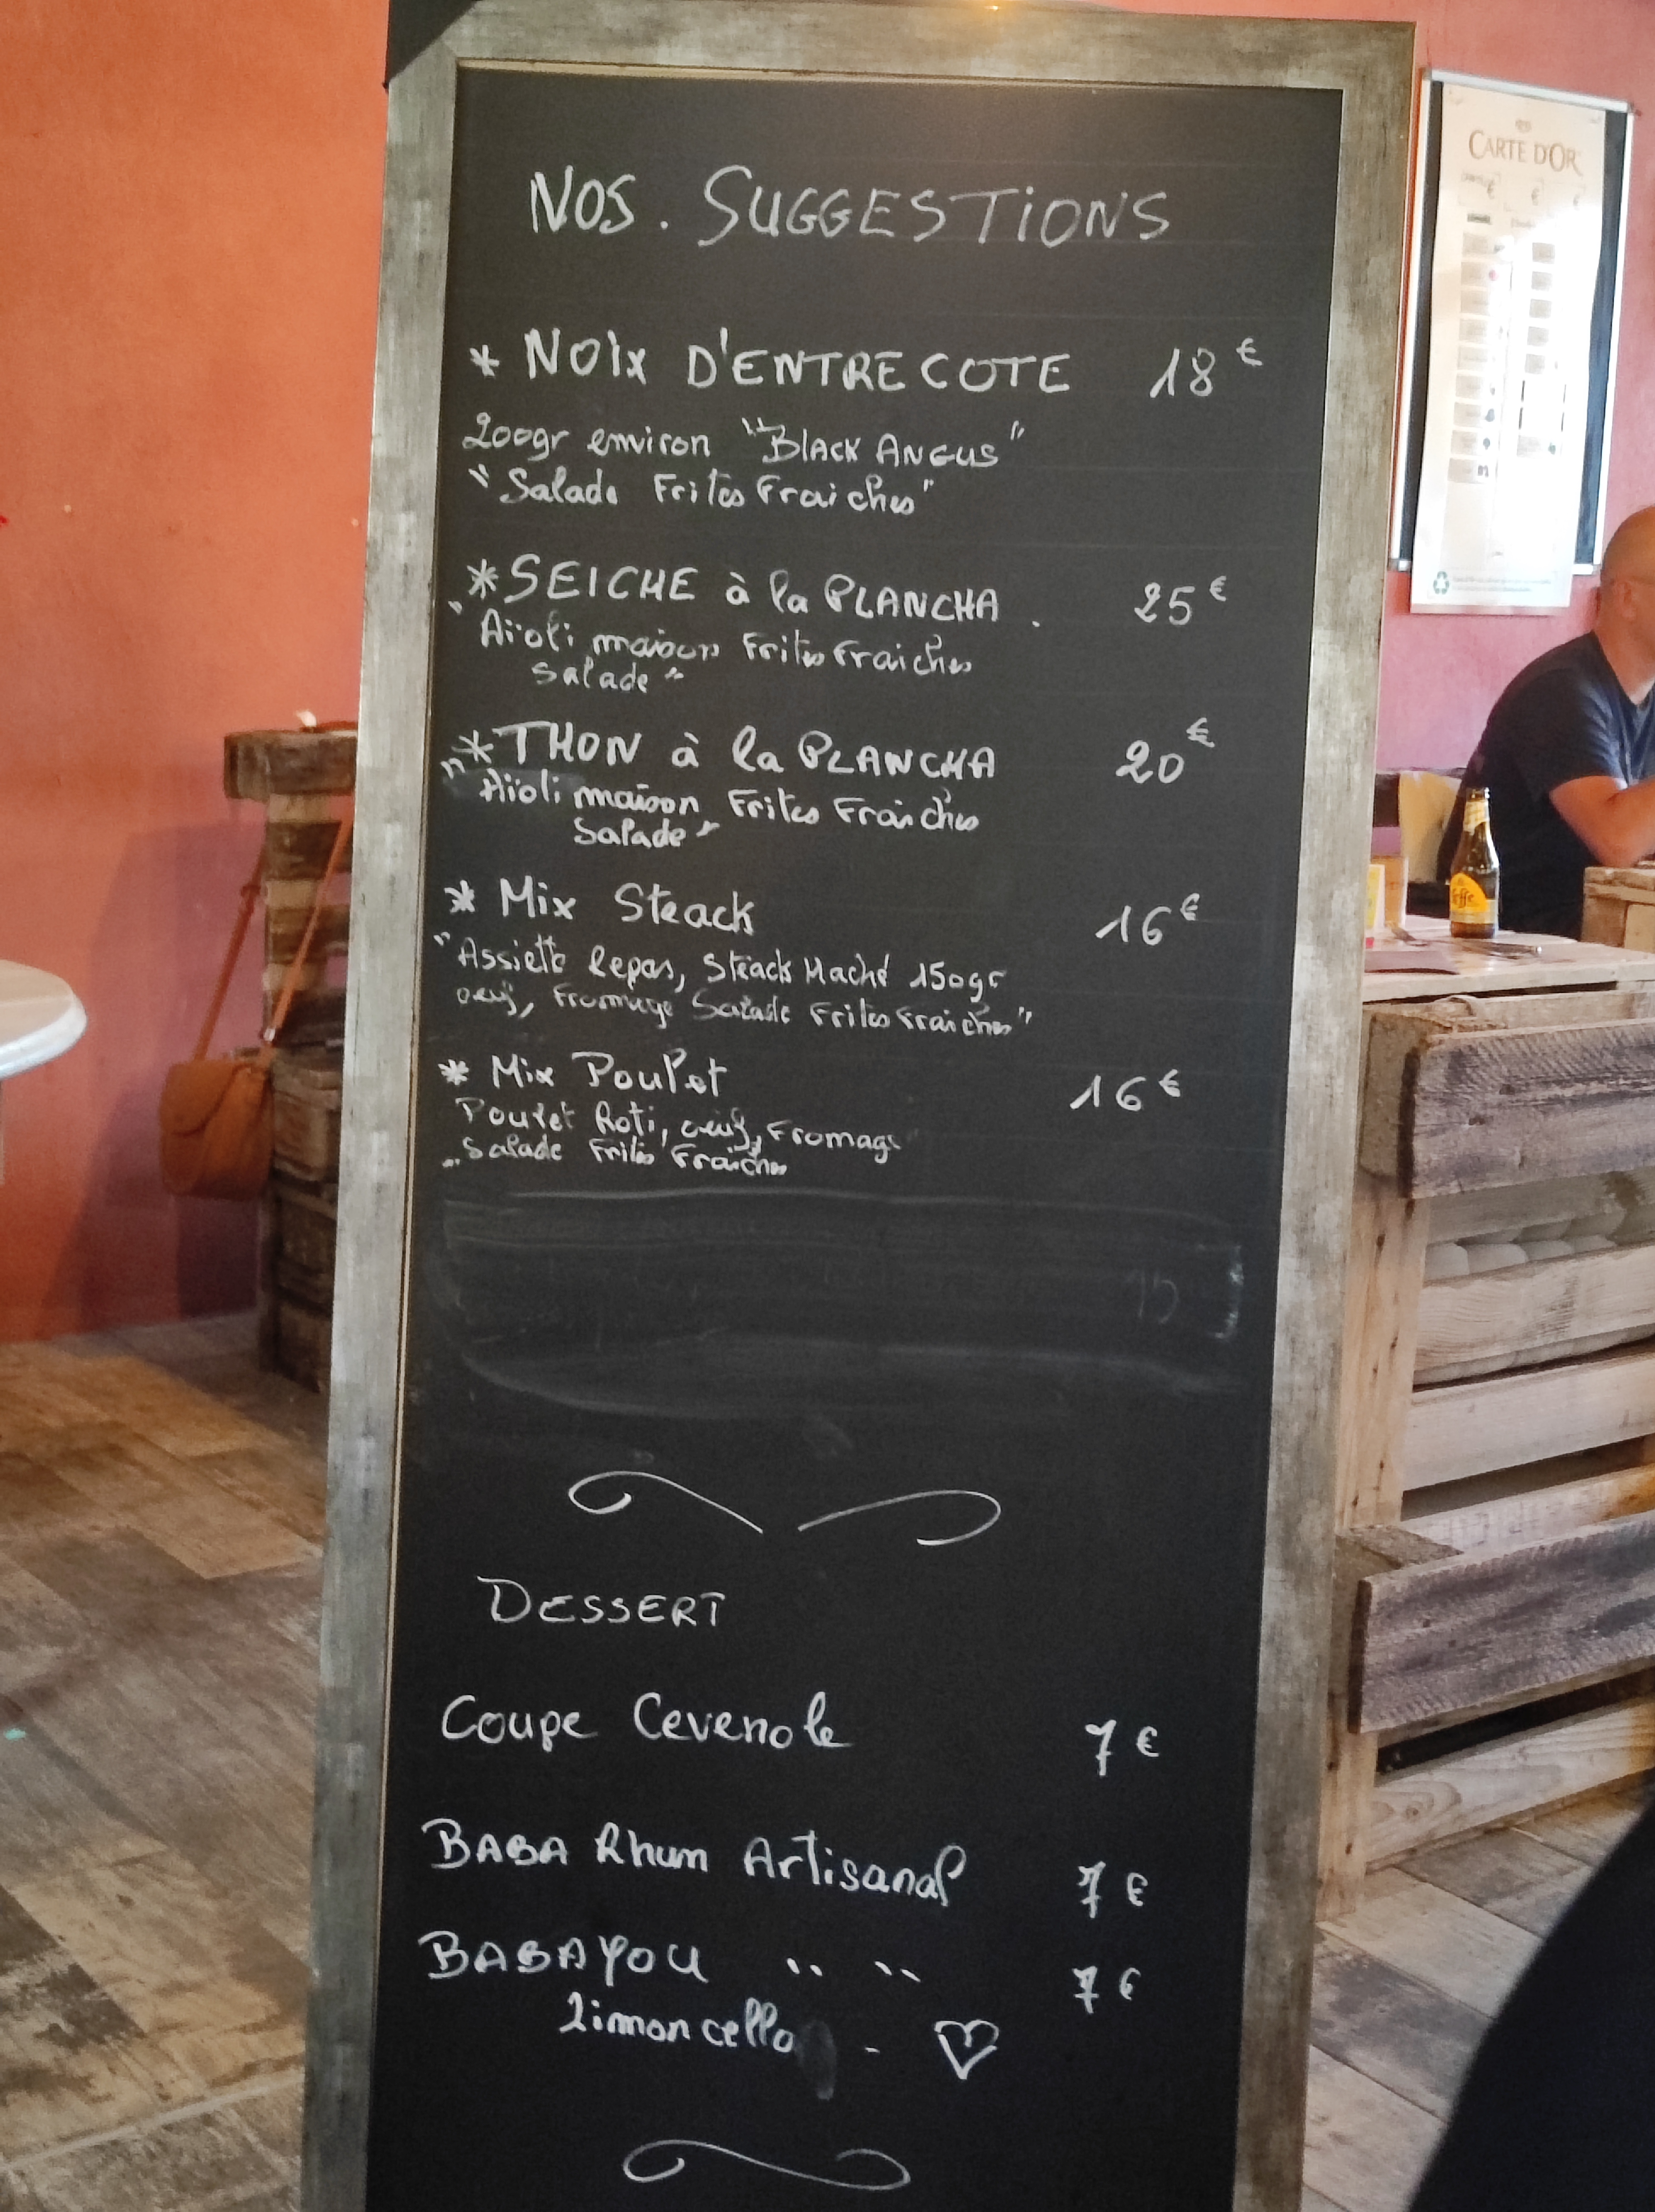 NOS. SUGGESTIONS
* NOIX D'ENTRECOTE 18€
200gr environ "BLACK ANGUS"
"Salade Frites Fraiches"
*SEICHE à la PLANCHA . 25€
"Aïoli maison Frites Fraiches
salade"
*THON à la PLANCHA 20€
"Aïoli maison Frites Fraiches
Salade"
* Mix Steack 16€
"Assiette Repas, Steack Haché 150gr
oeuf, Fromage Salade Frites Fraiches"
* Mix Poulet 16€
Poulet Roti, oeuf, Fromage
"Salade Frites Fraiches
15
DESSERT
Coupe Cevenole 7€
BABA Rhum Artisanal 7€
BABAYOU " " 7€
Limoncello - ♡
CARTE D'OR
Leffe